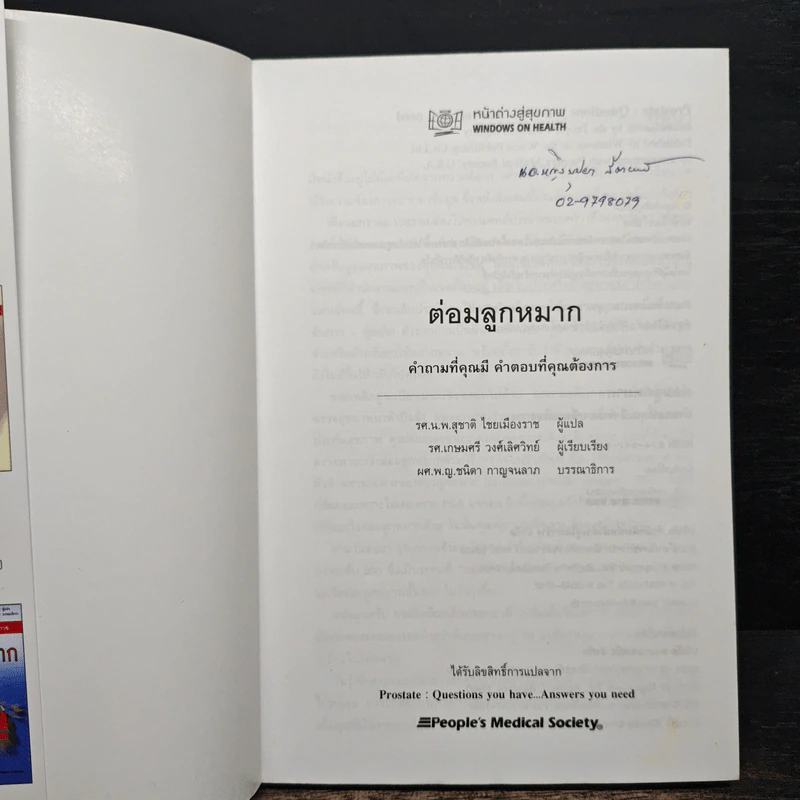 หน้าต่างสู่สุขภาพ
WINDOWS ON HEALTH
02-9798079
ต่อมลูกหมาก
คำถามที่คุณมี คำตอบที่คุณต้องการ
รศ.น.พ.สุชาติ ไชยเมืองราช ผู้แปล
รศ.เกษมศรี วงศ์เลิศวิทย์ ผู้เรียบเรียง
ผศ.พ.ญ.ชนิดา กาญจนลาภ บรรณาธิการ
ได้รับลิขสิทธิ์การแปลจาก
Prostate : Questions you have...Answers you need
People's Medical Society®